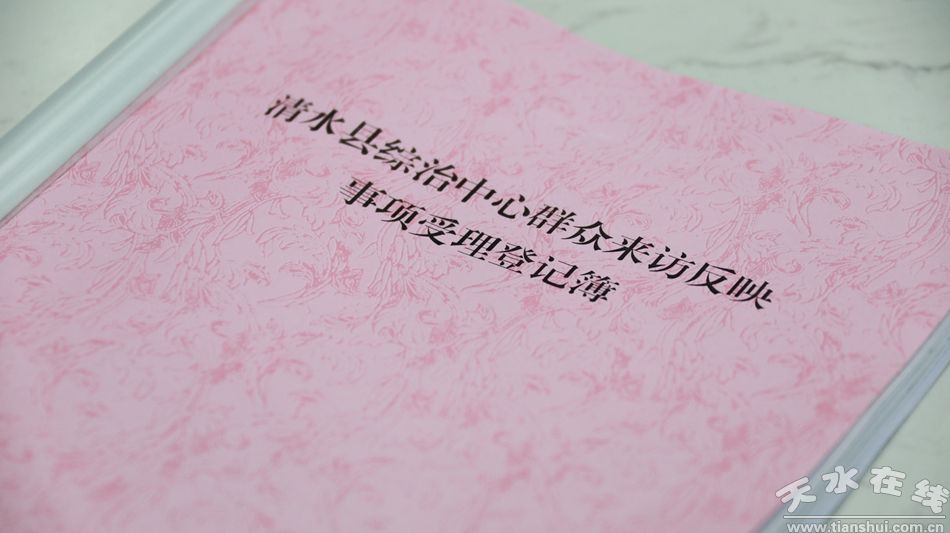 清水县综治中心群众来访反映
事项受理登记簿
天水在线
www.tianshui.com.cn